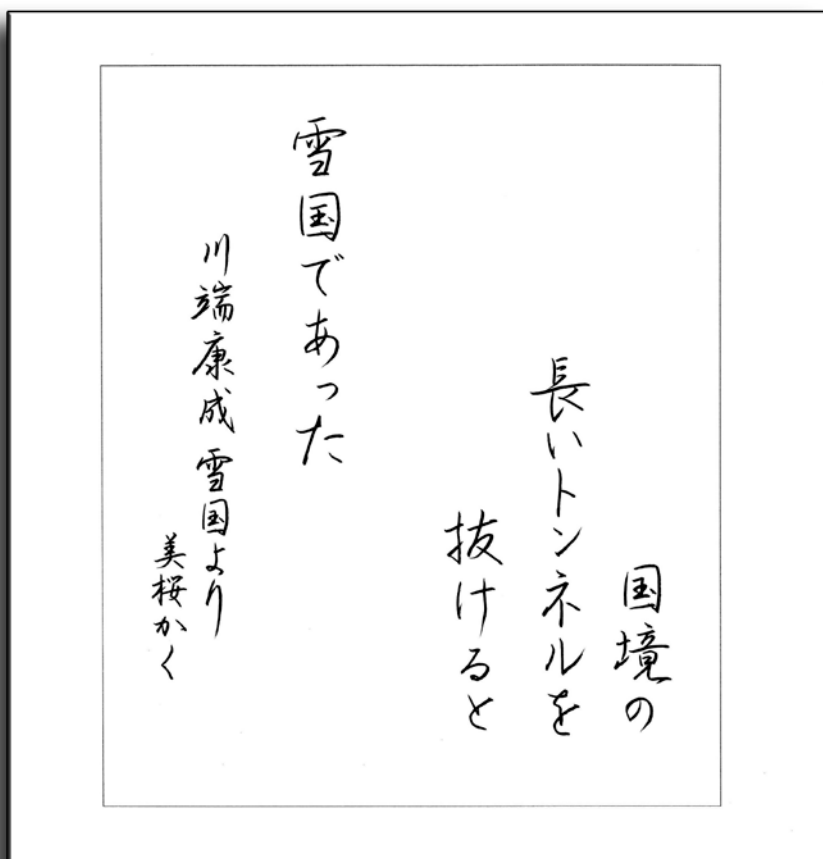 国境の
長いトンネルを
抜けると
雪国であった
川端康成 雪国より
美桜かく